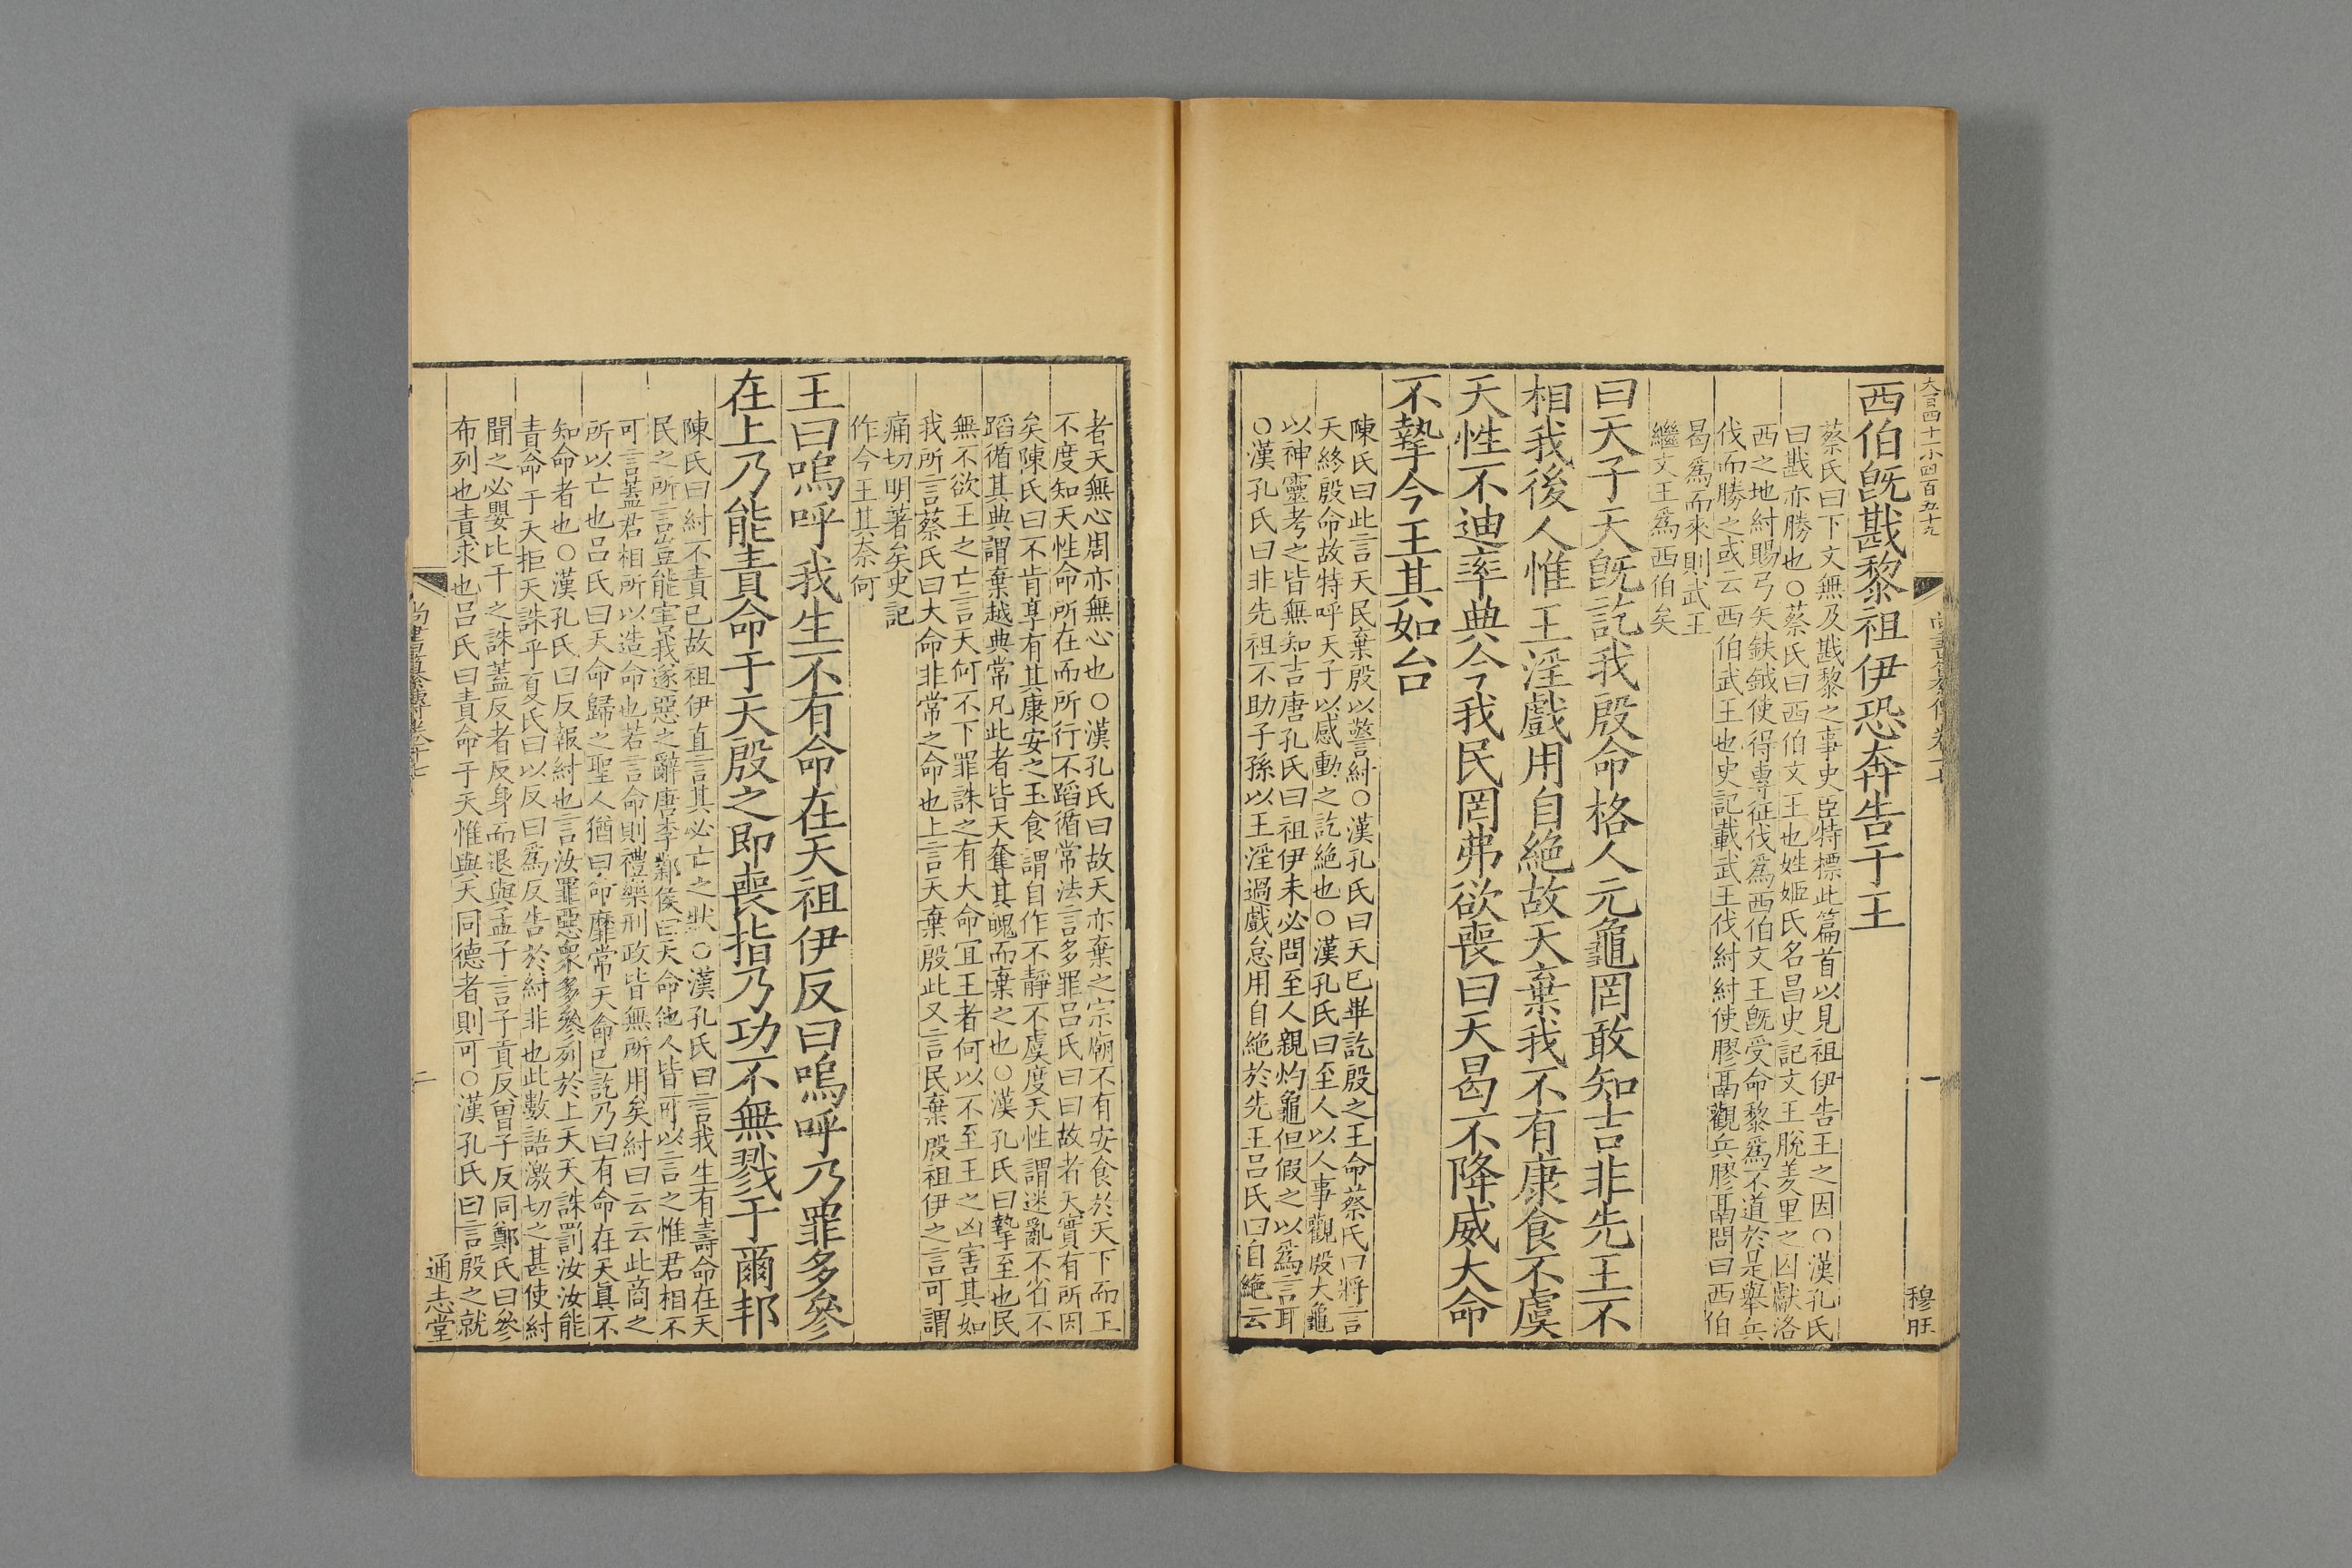 大百四十一小四百五十九
尚書纂傳卷十七
一
穆旺
西伯旣戡黎祖伊恐奔告于王
蔡氏曰下文無及戡黎之事史臣特標此篇首以見祖伊告王之因○漢孔氏
曰戡亦勝也○蔡氏曰西伯文王也姓姬氏名昌史記文王脫羑里之囚獻洛
西之地紂賜弓矢鈇鉞使得專征伐爲西伯文王旣受命黎爲不道於是舉兵
伐而勝之或云西伯武王也史記載武王伐紂紂使膠鬲觀兵膠鬲問曰西伯
曷爲而來則武王
繼文王爲西伯矣
曰天子天旣訖我殷命格人元龜罔敢知吉非先王不
相我後人惟王淫戲用自絶故天棄我不有康食不虞
天性不迪率典今我民罔弗欲喪曰天曷不降威大命
不摯今王其如台
陳氏曰此言天民棄殷以警紂○漢孔氏曰天已畢訖殷之王命蔡氏曰將言
天終殷命故特呼天子以感動之訖絶也○漢孔氏曰至人以人事觀殷大龜
以神靈考之皆無知吉唐孔氏曰祖伊未必問至人親灼龜但假之以爲言耳
○漢孔氏曰非先祖不助子孫以王淫過戲怠用自絶於先王吕氏曰自絶云
者天無心周亦無心也○漢孔氏曰故天亦棄之宗廟不有安食於天下而王
不度知天性命所在而所行不蹈循常法言多罪吕氏曰曰故者天實有所因
矣陳氏曰不肯享有其康安之玉食謂自作不靜不虞度天性謂迷亂不省不
蹈循其典謂棄越典常凡此者皆天奪其魄而棄之也○漢孔氏曰摯至也民
無不欲王之亡言天何不下罪誅之有大命宜王者何以不至王之凶害其如
我所言蔡氏曰大命非常之命也上言天棄殷此又言民棄殷祖伊之言可謂
痛切明著矣史記
作今王其奈何
王曰嗚呼我生不有命在天祖伊反曰嗚呼乃罪多參
在上乃能責命于天殷之即喪指乃功不無戮于爾邦
陳氏曰紂不責已故祖伊直言其必亡之狀○漢孔氏曰言我生有壽命在天
民之所言豈能害我遂惡之辭唐李鄴侯曰天命他人皆可以言之惟君相不
可言蓋君相所以造命也若言命則禮樂刑政皆無所用矣紂曰云云此商之
所以亡也吕氏曰天命歸之聖人猶曰命靡常天命已訖乃曰有命在天眞不
知命者也○漢孔氏曰反報紂也言汝罪惡衆多參列於上天天誅罰汝汝能
責命于天拒天誅乎夏氏曰以反曰爲反告於紂非也此數語激切之甚使紂
聞之必嬰比干之誅蓋反者反身而退與孟子言子貢反曾子反同鄭氏曰參
布列也責求也吕氏曰責命于天惟與天同德者則可○漢孔氏曰言殷之就
尚書纂傳卷十七
二
通志堂